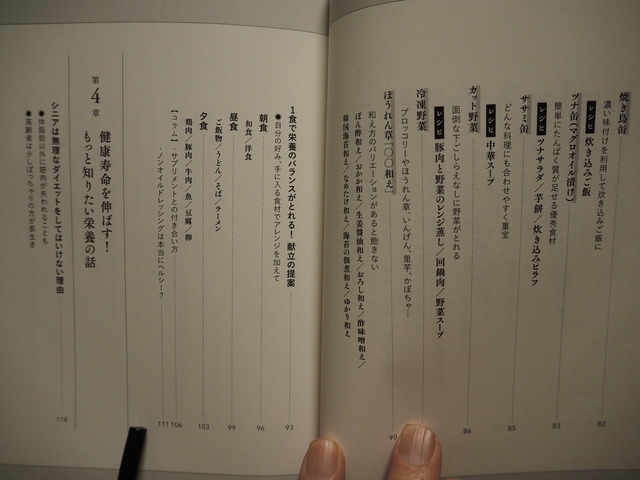 焼き鳥缶 82
濃い味付けを利用して炊き込みご飯に
レシピ 炊き込みご飯
ツナ缶(マグロオイル漬け) 83
簡単にたんぱく質が足せる優秀食材
レシピ ツナサラダ/芋餅/炊き込みピラフ
ササミ缶 85
どんな料理にも合わせやすく重宝
レシピ 中華スープ
カット野菜 86
面倒な下ごしらえなしに野菜がとれる
レシピ 豚肉と野菜のレンジ蒸し/回鍋肉/野菜スープ
冷凍野菜
ブロッコリーやほうれん草、いんげん、里芋、かぼちゃ…
ほうれん草「〇〇和え」 90
和え方のバリエーションがあると飽きない
ぽん酢和え/おかか和え/生姜醤油和え/おろし和え/酢味噌和え/
韓国海苔和え/なめたけ和え/海苔の佃煮和え/ゆかり和え
1食で栄養のバランスがとれる!献立の提案 93
●自分の好み、手に入る食材でアレンジを加えて
朝食 96
和食/洋食
昼食 99
ご飯物/うどん/そば/ラーメン
夕食 103
鶏肉/豚肉/牛肉/魚/豆腐/卵
【コラム】・サプリメントとの付き合い方 106
・ノンオイルドレッシングは本当にヘルシー? 111
第4章
健康寿命を伸ばす!
もっと知りたい栄養の話
シニアは無理なダイエットをしてはいけない理由 114
●体脂肪以外に筋肉が失われることも
●高齢者は少しぽっちゃりの方が長生き